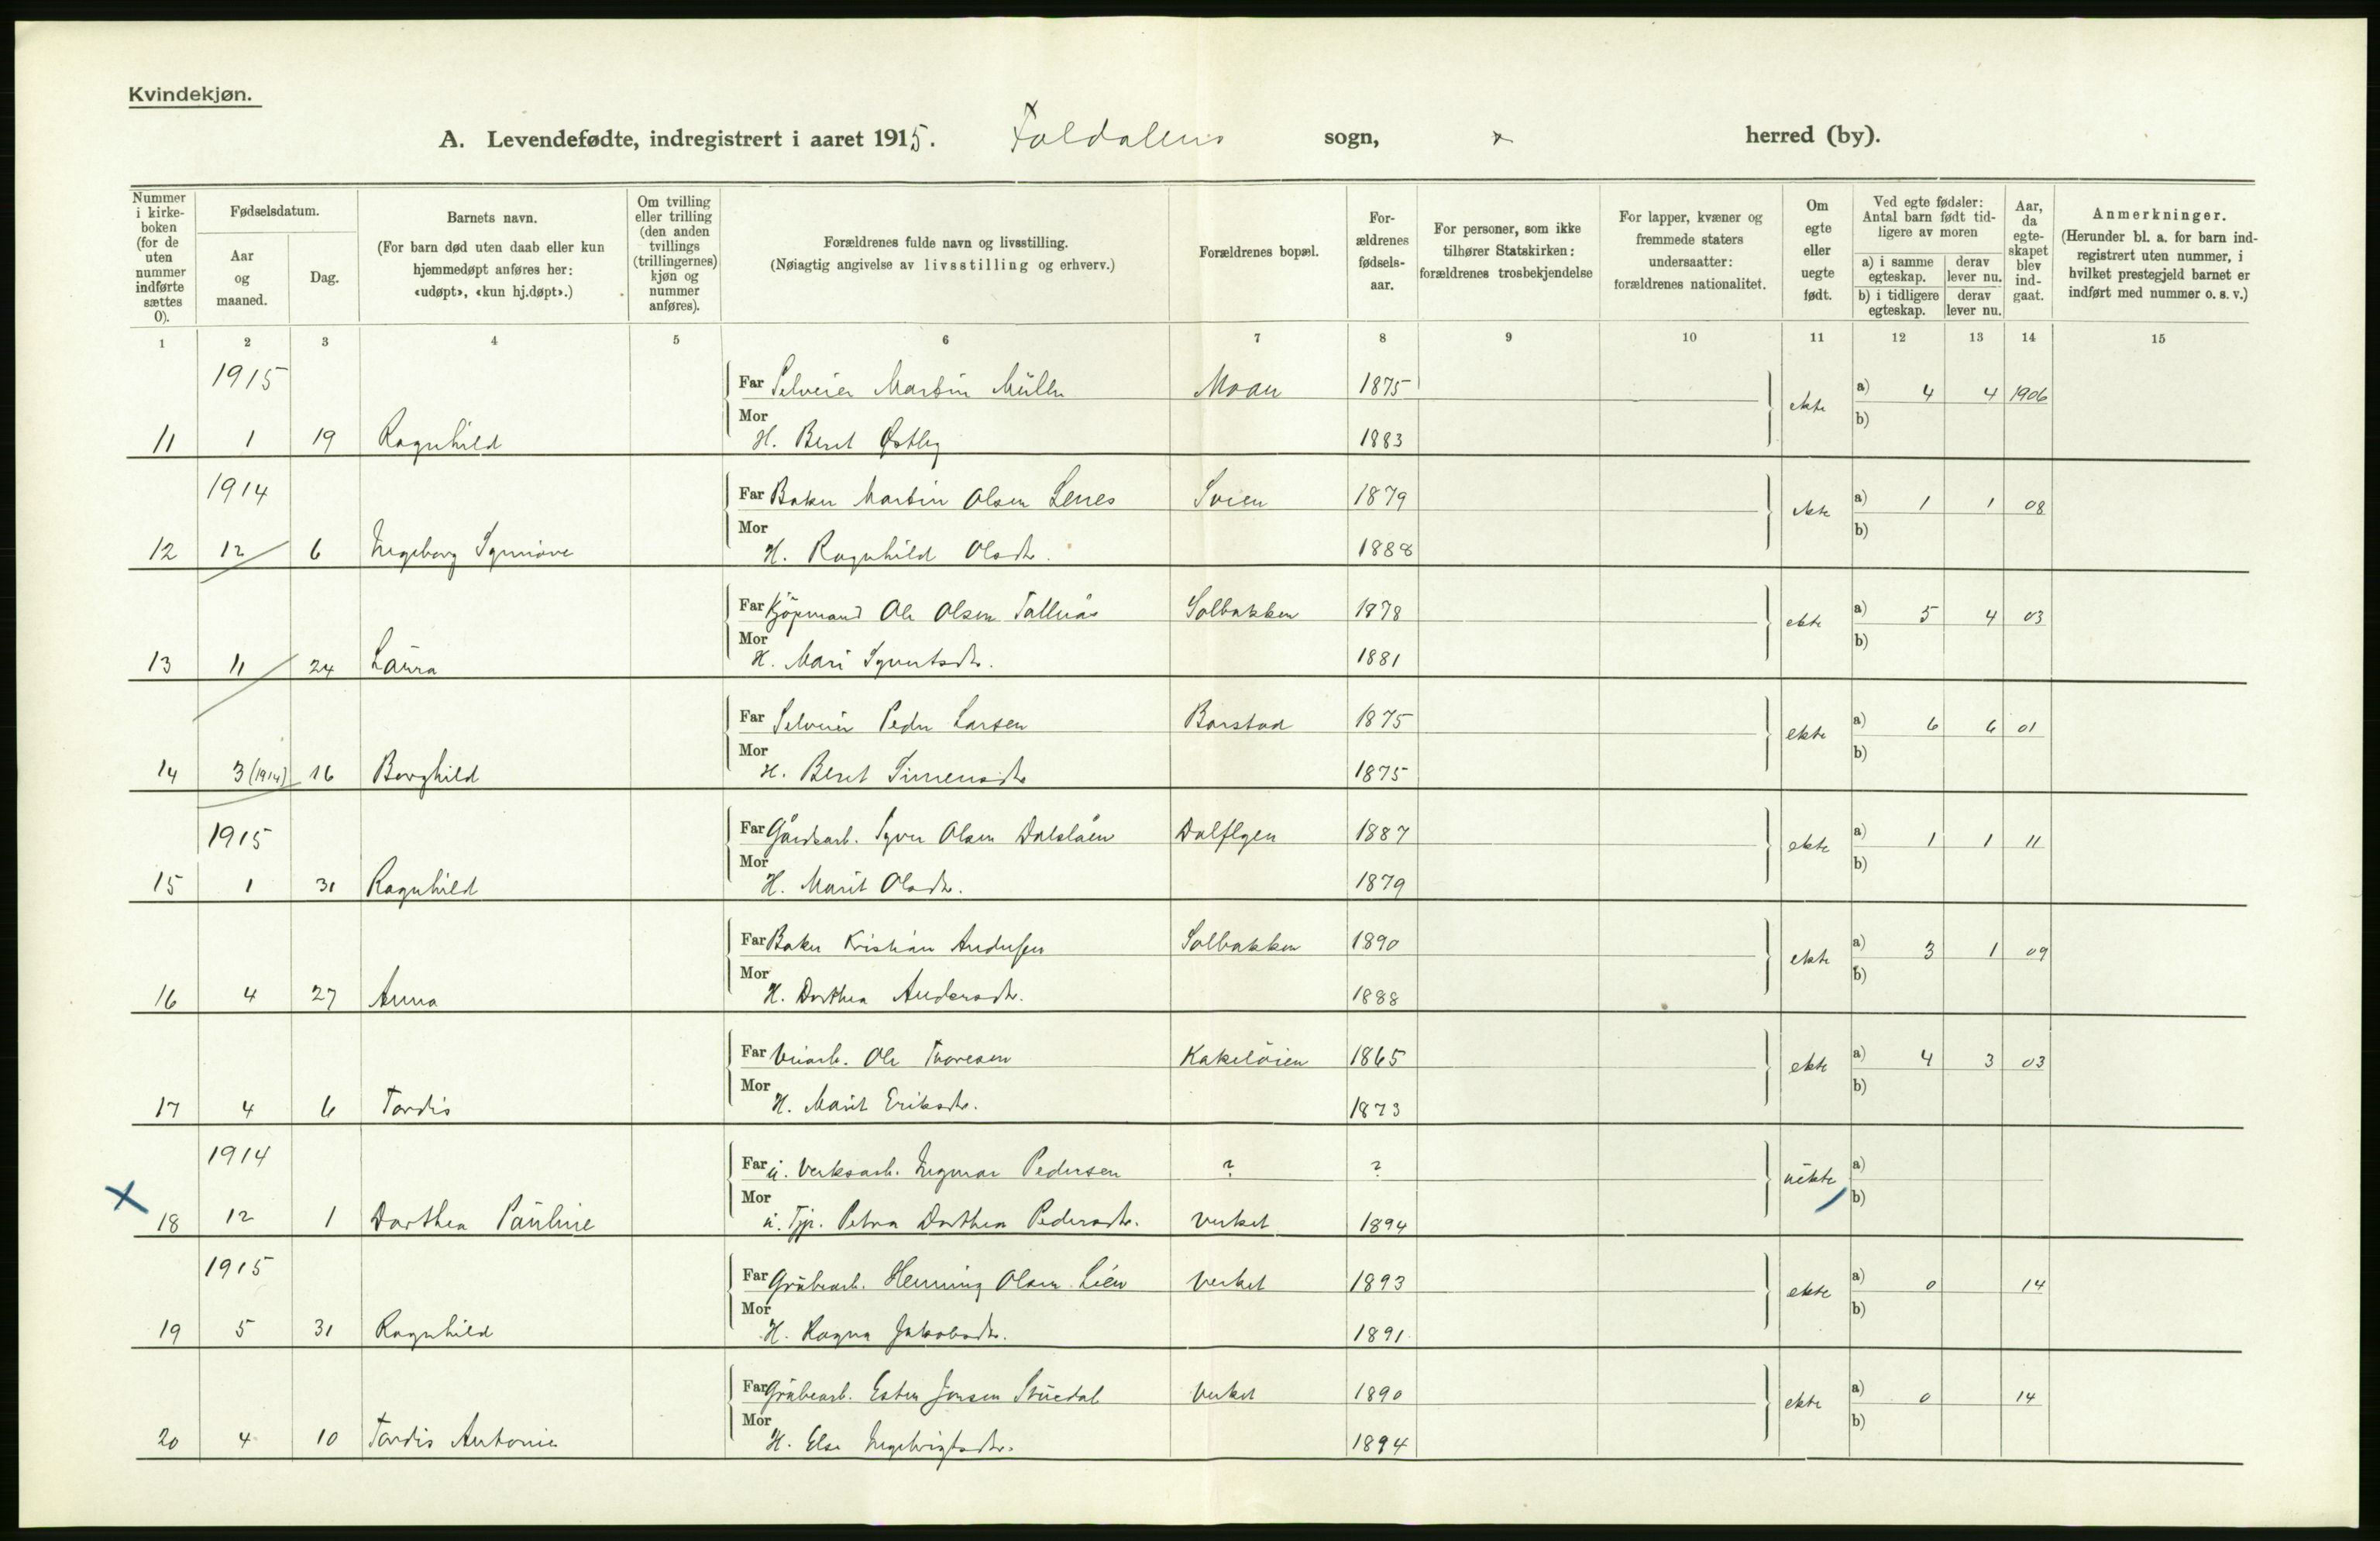 Kvindekjøn.
A. Levendefødte, indregistrert i aaret 1915. Foldalens sogn, herred (by).
Nummer i kirke-boken (for de uten nummer indførte sættes 0).
Fødselsdatum.
Aar og maaned.
Dag.
Barnets navn.
(For barn død uten daab eller kun hjemmedøpt anføres her: «udøpt», «kun hj.døpt».)
Om tvilling eller trilling (den anden tvillings (trillingernes) kjøn og nummer anføres).
Forældrenes fulde navn og livsstilling.
(Nøiagtig angivelse av livsstilling og erhverv.)
Forældrenes bopæl.
For-ældrenes fødsels-aar.
For personer, som ikke tilhører Statskirken: forældrenes trosbekjendelse
For lapper, kvæner og fremmede staters undersaatter: forældrenes nationalitet.
Om egte eller uegte født.
Ved egte fødsler: Antal barn født tid-ligere av moren
a) i samme egteskap. derav lever nu.
b) i tidligere egteskap. derav lever nu.
Aar, da egte-skapet blev ind-gaat.
Anmerkninger.
(Herunder bl. a. for barn ind-registrert uten nummer, i hvilket prestegjeld barnet er indført med nummer o. s. v.)
1 2 3 4 5 6 7 8 9 10 11 12 13 14 15
1915 Far Selveier Martin Müller Moan 1875 ekte a) 4 4 1906
11 1 19 Ragnhild Mor H. Beret Østby 1883 b)
1914 Far Baker Martin Olsen Lenes Svien 1879 ekte a) 1 1 08
12 12 6 Ingeborg Synnøve Mor H. Ragnhild Olsdtr. 1888 b)
Far Kjöpmand Ole Olsen Tallnås Solbakken 1878 ekte a) 5 4 03
13 11 24 Laura Mor H. Mari Syvertsdtr. 1881 b)
Far Selveier Peder Larsen Borstad 1875 ekte a) 6 6 01
14 3 (1914) 16 Borghild Mor H. Beret Simensdtr 1875 b)
1915 Far Gårdsarb. Syver Olsen Dalslåen Dalflyen 1887 ekte a) 1 1 11
15 1 31 Ragnhild Mor H. Marit Olsdtr. 1879 b)
Far Baker Kristian Andersen Solbakken 1890 ekte a) 3 1 09
16 4 27 Anna Mor H. Dorthea Andersdtr. 1888 b)
Far Veiarb. Ole Thoresen Kakelöien 1865 ekte a) 4 3 03
17 4 6 Tordis Mor H. Marit Eriksdtr. 1873 b)
1914 Far u. Verksarb. Ingmar Pedersen ? ? uekte a)
18 12 1 Dorthea Pauline Mor u. Tjp. Petra Dorthea Pedersdtr. Verket 1894 b)
1915 Far Grubearb. Henning Olsen Lien Verket 1893 ekte a) 0 14
19 5 31 Ragnhild Mor H. Ragna Jakobsdtr. 1891 b)
Far Grubearb. Esten Jonsen Stuedal Verket 1890 ekte a) 0 14
20 4 10 Tordis Antonie Mor H. Else Ingebrigtsdtr. 1894 b)